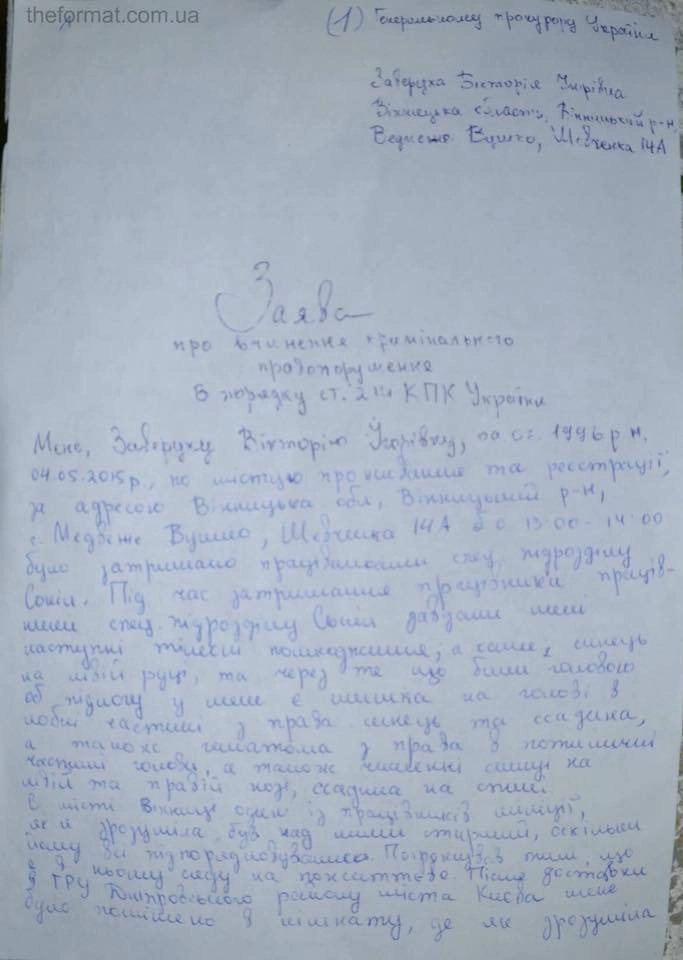 theformat.com.ua
(1) Генеральному прокурору України
Заверуха Вікторія Ігорівна
Вінницька область, Вінницький р-н,
Ведмеже Вушко, Шевченка 14А
Заява
про вчинення кримінального
правопорушення
В порядку ст. 214 КПК України
Мене, Заверуху Вікторію Ігорівну, 1996 р.н.
04.05.2015р., по місцю проживання та реєстрації,
за адресою Вінницька обл, Вінницький р-н,
с. Медвеже Вушко, Шевченка 14А о 13:00-14:00
було затримано працівниками спец. підрозділу
Сокіл. Під час затримання працівники праців-
ники спец. підрозділу Сокіл завдали мені
наступні тілесні пошкодження, а саме: синець
на лівій руці, та через те що били головою
об підлогу у мене є шишка на голові в
лобній частині з права синець та ссадина,
а також гематома з права в потиличній
частині голови, а також численні синці на
лівій та правій нозі, ссадина на спині.
В місті Вінниці один із працівників міліції,
як я зрозуміла був над ними старший, оскільки
йому всі підпорядковувались. Погрожував тим, що
я сяду на пожиттєво. Після доставки
в ТРУ Дніпровського району міста Києва мене
було поміщено в кімнату, де як зрозуміла